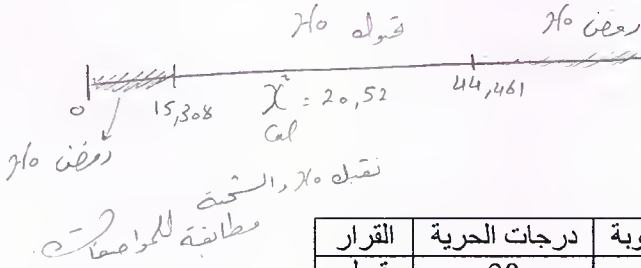 قبول H0
رفض H0
0
15,308
χ² = 20,52
Cal
44,461
رفض H0
نقبل H0 والشحنة
مطابقة للمواصفات
درجات الحرية | القرار